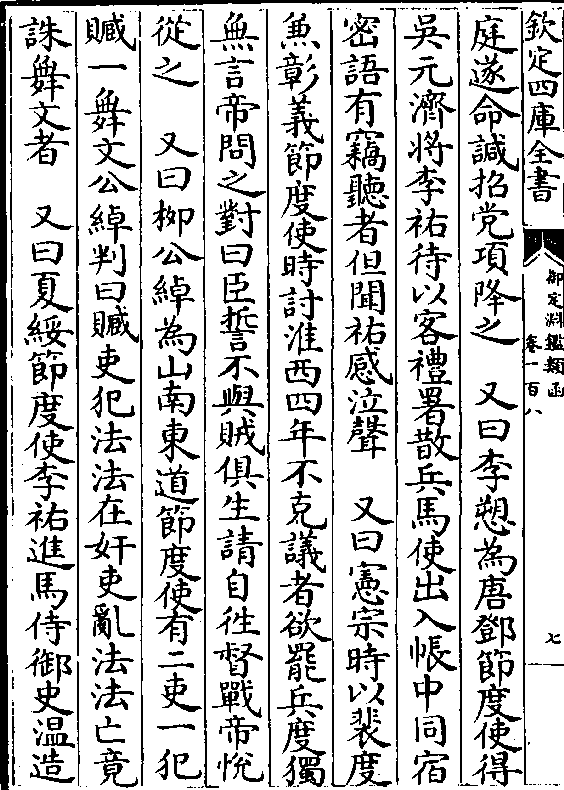 欽定四庫全書
御定淵鑑類函
卷一百八
七
庭遂命諴招党項降之　又曰李愬為唐鄧節度使得
吳元濟將李祐待以客禮署散兵馬使出入帳中同宿
密語有竊聽者但聞祐感泣聲　又曰憲宗時以裴度
兼彰義節度使時討淮西四年不克議者欲罷兵度獨
無言帝問之對曰臣誓不與賊俱生請自徃督戰帝悅
從之　又曰柳公綽為山南東道節度使有二吏一犯
贓一舞文公綽判曰贓吏犯法法在奸吏亂法法亡竟
誅舞文者　又曰夏綏節度使李祐進馬侍御史溫造